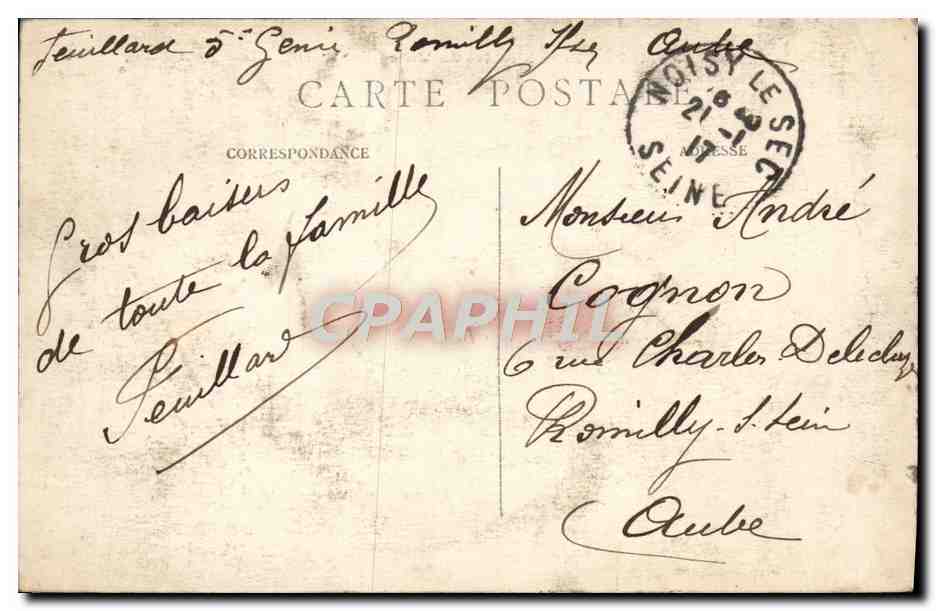 Feuillard 5e Génie Romilly s/se Aube
CARTE POSTALE
NOISY LE SEC
21 -1
17
SEINE
CORRESPONDANCE
ADRESSE
Gros baisers
de toute la famille
Feuillard
Monsieur André
Cognon
6 rue Charles Delecluze
Romilly-s.-Sein
Aube
CPAPHIL